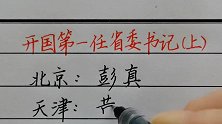 开国第一任省委书记(上)
北京：彭真
天津：